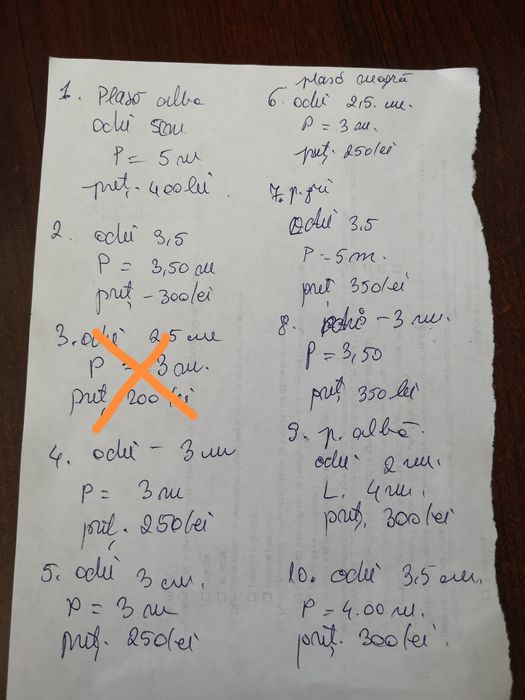 1. Plasă albă
ochi 5cm.
P = 5 m
preț. 400 lei
2. ochi 3,5
P = 3,50 m
preț - 300 lei
3. ochi 2,5 cm
P = 3 m.
preț 200 lei
4. ochi - 3 cm
P = 3 m
preț. 250 lei
5. ochi 3 cm.
P = 3 m
preț. 250 lei
plasă neagră
6. ochi 2,5 cm.
P = 3 m.
preț. 250 lei
7. p. gri
ochi 3,5
P - 5 m.
preț 350 lei
8. ochi - 3 cm.
P = 3,50
preț 350 lei
9. p. albă.
ochi 2 cm.
L. 4 m.
preț. 300 lei
10. ochi 3,5 cm.
P = 4.00 m.
preț. 300 lei